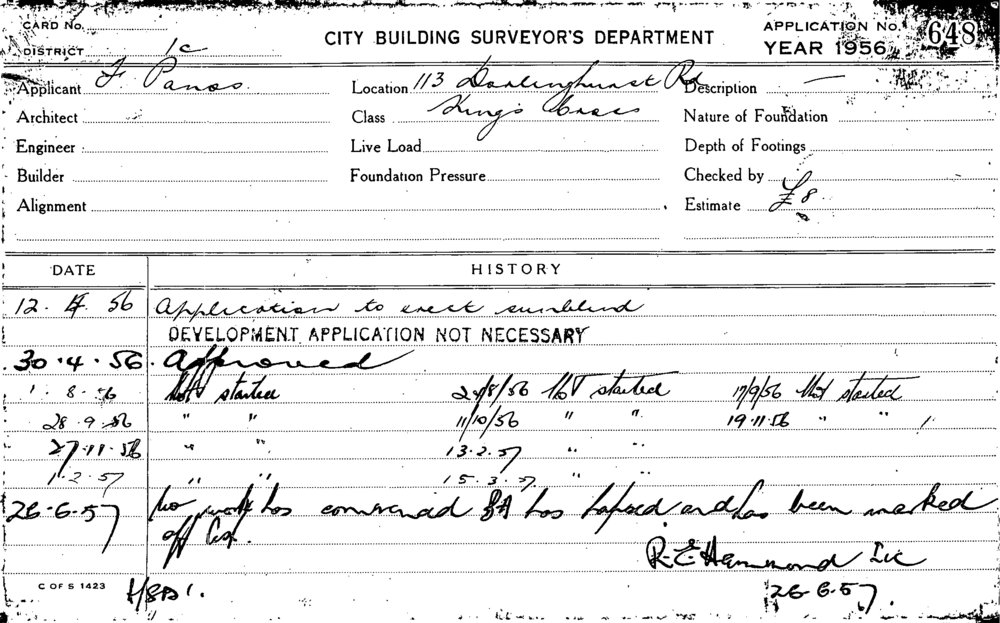 CARD No.
CITY BUILDING SURVEYOR'S DEPARTMENT
APPLICATION No. 648
DISTRICT 1c
YEAR 1956
Applicant F. Panos Location 113 Darlinghurst Rd Description —
Architect Class Kings Cross Nature of Foundation
Engineer Live Load Depth of Footings
Builder Foundation Pressure Checked by
Alignment Estimate £8
DATE HISTORY
12. 4. 56 Application to erect sunblind
DEVELOPMENT APPLICATION NOT NECESSARY
30.4.56. Approved
1. 8. 56 Not started 24/8/56 Not started 17/9/56 Not started
28.9.56 " " 11/10/56 " " 19.11.56 " "
27.11.56 " " 13.2.57 " "
1.2.57 " " 15.3.57 " "
26.6.57 No work has commenced BA has lapsed and has been marked
off
R.E. Hammond
26.6.57.
C OF S 1423